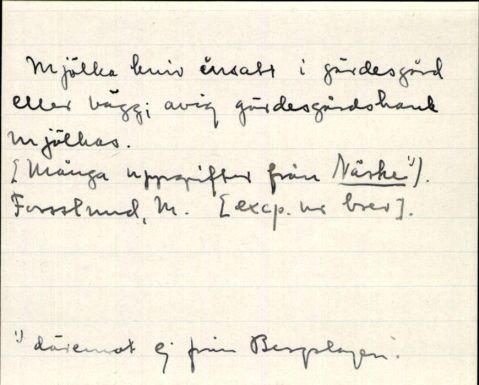 Mjölka kniv insatt i gärdesgård
eller vägg; avig gärdesgårdshank
mjölkas.
[Många uppgifter från Närke¹)].
Forsslund, M. [excp. ur brev].
¹) däremot ej från Bergslagen.